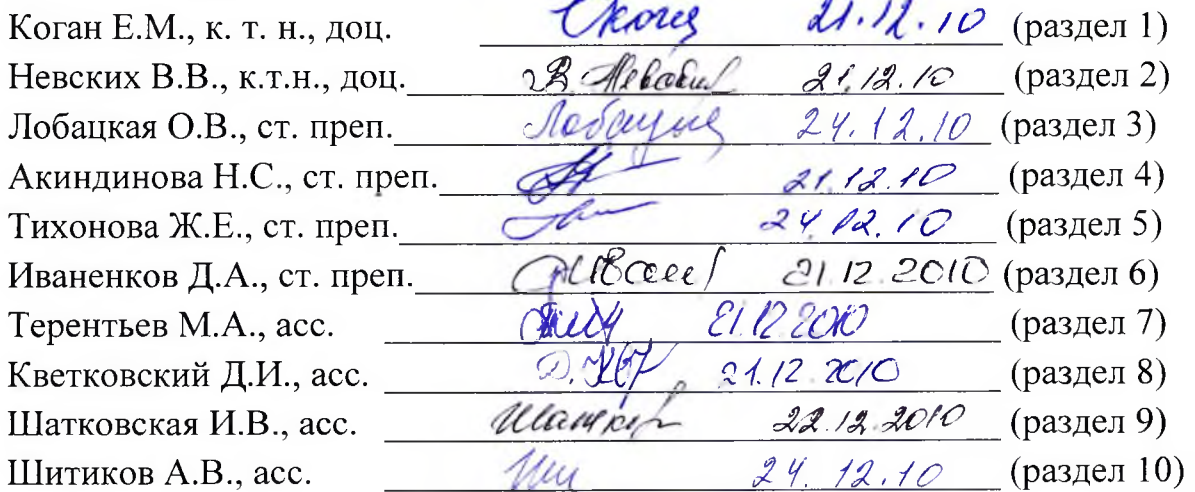 Коган Е.М., к. т. н., доц. 21.12.10 (раздел 1)
Невских В.В., к.т.н., доц. 21.12.10 (раздел 2)
Лобацкая О.В., ст. преп. 24.12.10 (раздел 3)
Акиндинова Н.С., ст. преп. 21.12.10 (раздел 4)
Тихонова Ж.Е., ст. преп. 24.12.10 (раздел 5)
Иваненков Д.А., ст. преп. 21.12.2010 (раздел 6)
Терентьев М.А., асс. 21.12.2010 (раздел 7)
Кветковский Д.И., асс. 21.12.2010 (раздел 8)
Шатковская И.В., асс. 22.12.2010 (раздел 9)
Шитиков А.В., асс. 24.12.10 (раздел 10)